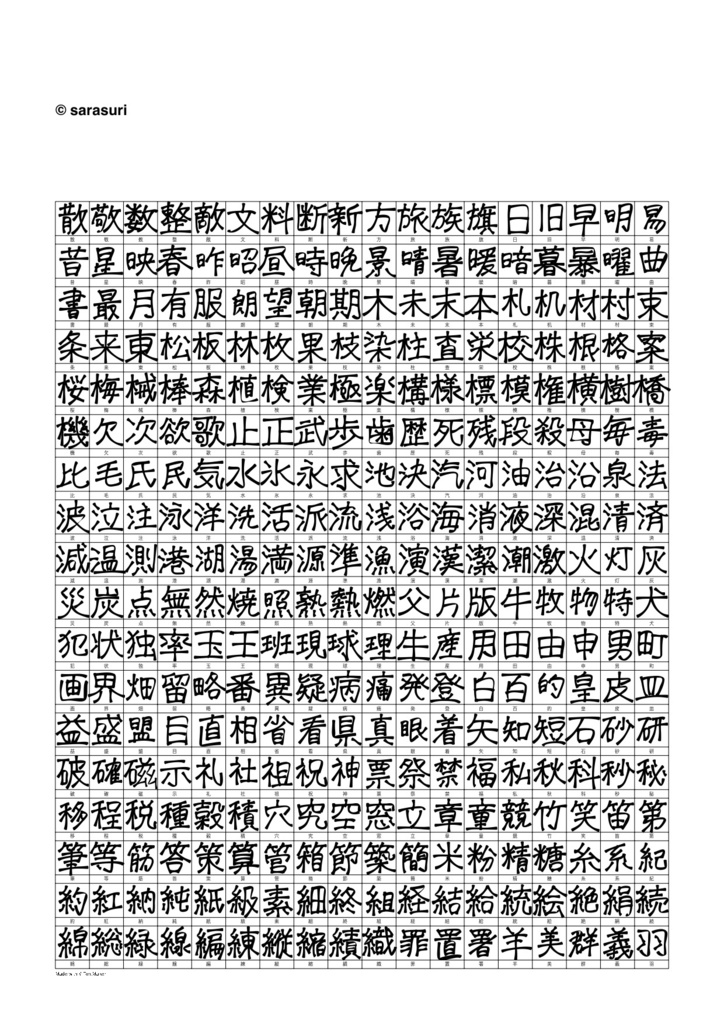 © sarasuri
散敬数整敵文料断新方旅族旗日旧早明易
昔星映春昨昭昼時晩景晴暑暖暗暮暴曜曲
書最月有服朗望朝期木未末本札机材村束
条来東松板林枚果枝染柱査栄校株根格案
桜梅械棒森植検業極楽構様標模権横樹橋
機欠次欲歌止正武歩歯歴死残段殺母毎毒
比毛氏民気水氷永求池決汽河油治沿泉法
波泣注泳洋洗活派流浅浴海消液深混清済
減温測港湖湯満源準漁演漢潔潮激火灯灰
災炭点無然焼照熟熱燃父片版牛牧物特犬
犯状独率玉王班現球理生産用田由申男町
画界畑留略番異疑病痛発登白百的皇皮皿
益盛盟目直相省看県真眼着矢知短石砂研
破確磁示礼社祖祝神票祭禁福私秋科秒秘
移程税種穀積穴究空窓立章童競竹笑笛第
筆等筋答策算管箱節築簡米粉精糖糸系紀
約紅納純紙級素細終組経結給統絵絶絹続
綿総緑線編練縦縮績織罪置署羊美群義羽